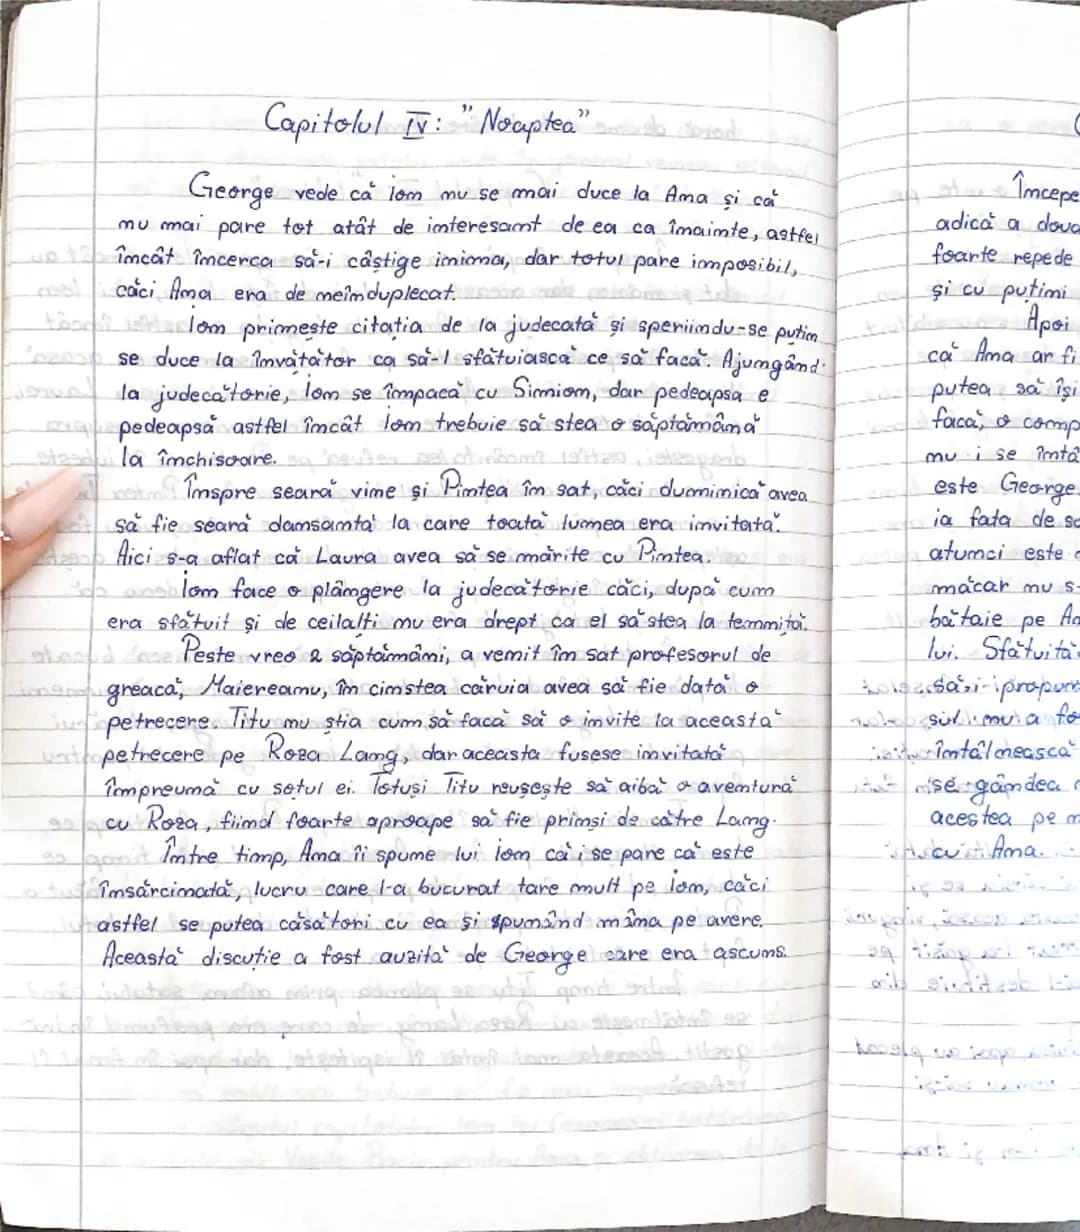 Capitolul IV: "Noaptea"
George vede că Ion nu se mai duce la Ana și că
nu mai pare tot atât de interesant de ea ca înainte, astfel
încât încerca să-i câștige inima, dar totul pare imposibil,
căci Ana era de neînduplecat.
Ion primește citația de la judecată și speriindu-se puțin
se duce la învățător ca să-l sfătuiască ce să facă. Ajungând
la judecătorie, Ion se împacă cu Simion, dar pedeapsa e
pedeapsă astfel încât Ion trebuie să stea o săptămână
la închisoare.
Înspre seară vine și Pintea în sat, căci duminică avea
să fie seară dansantă la care toată lumea era invitată.
Aici s-a aflat că Laura avea să se mărite cu Pintea.
Ion face o plângere la judecătorie căci, după cum
era sfătuit și de ceilalți nu era drept ca el să stea la temniță.
Peste vreo 2 săptămâni, a venit în sat profesorul de
greacă, Maiereanu, în cinstea căruia avea să fie dată o
petrecere. Titu nu știa cum să facă să o invite la această
petrecere pe Roza Lang, dar aceasta fusese invitată
împreună cu soțul ei. Totuși Titu reușește să aibă o aventură
cu Roza, fiind foarte aproape să fie prinși de către Lang.
Între timp, Ana îi spune lui Ion că i se pare că este
însărcinată, lucru care l-a bucurat tare mult pe Ion, căci
astfel se putea căsători cu ea și spunând mâna pe avere.
Această discuție a fost auzită de George care era ascuns.
Începe
adică a doua
foarte repede
și cu puțini
Apoi
că Ana ar fi
putea să își
facă, o comp
nu i se întâ
este George
ia fata de so
atunci este
măcar nu s-
bătaie pe An
lui. Sfătuită
să-i propun
nu a fo
întâlnească
se gândea
acestea pe m
cu Ana.